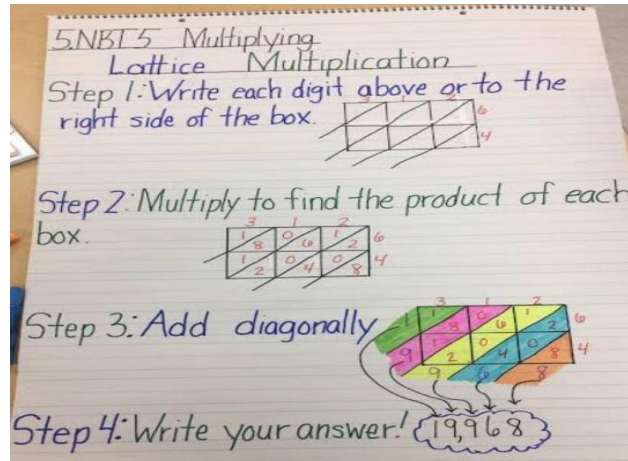 5.NBT5 Multiplying
Lattice Multiplication
Step 1: Write each digit above or to the
right side of the box.
3 1 2
6
4
Step 2: Multiply to find the product of each
box.
3 1 2
1 0 1 6
8 6 2
1 0 0 4
2 4 8
Step 3: Add diagonally
3 1 2
1 1 0 1 6
8 6 2
9 1 0 0 4
2 4 8
9 6 8
Step 4: Write your answer! 19,968